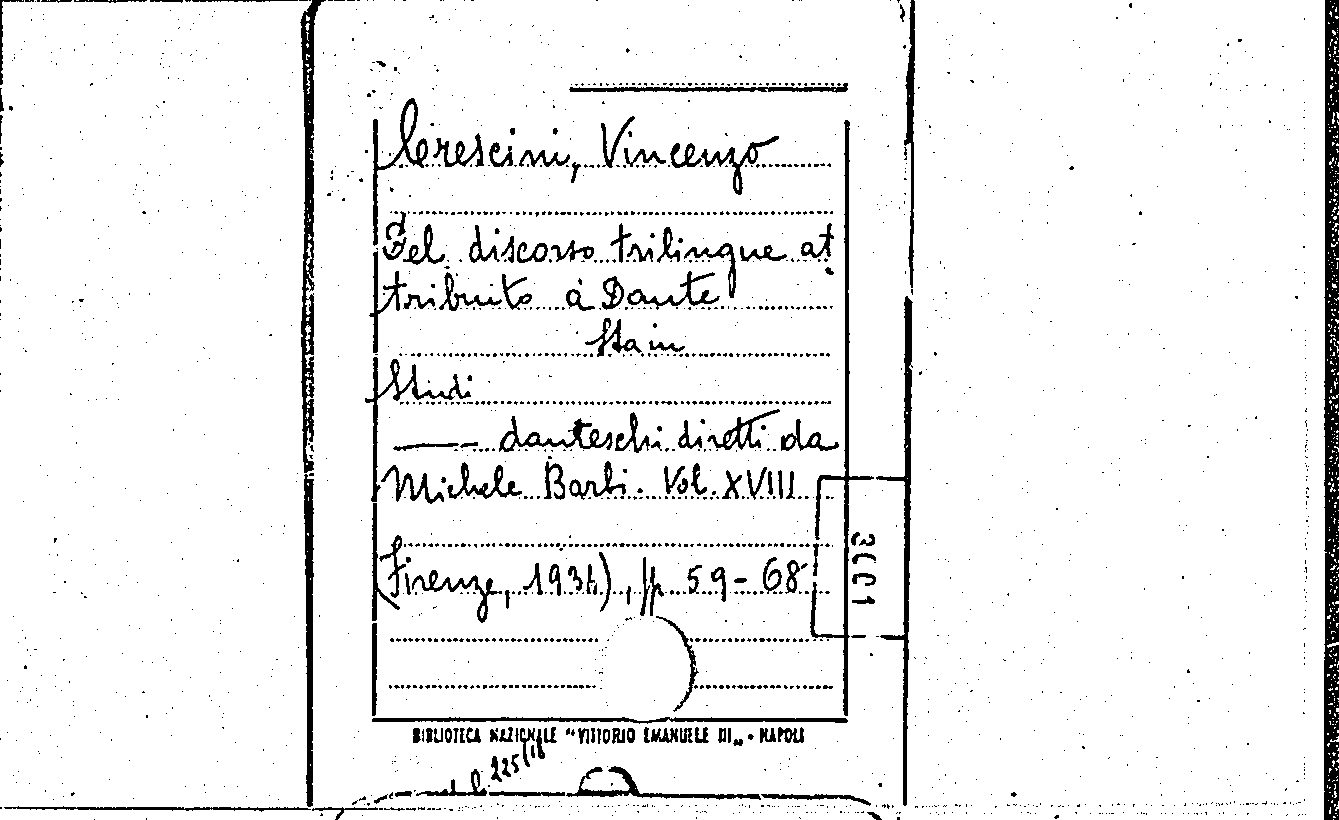 Crescini, Vincenzo
Del discorso trilingue at
tribuito a Dante
Sta in
Studi
—— danteschi diretti da
Michele Barbi. Vol. XVIII
(Firenze, 1934), pp. 59-68
BIBLIOTECA NAZIONALE "VITTORIO EMANUELE III„ - NAPOLI
225/18